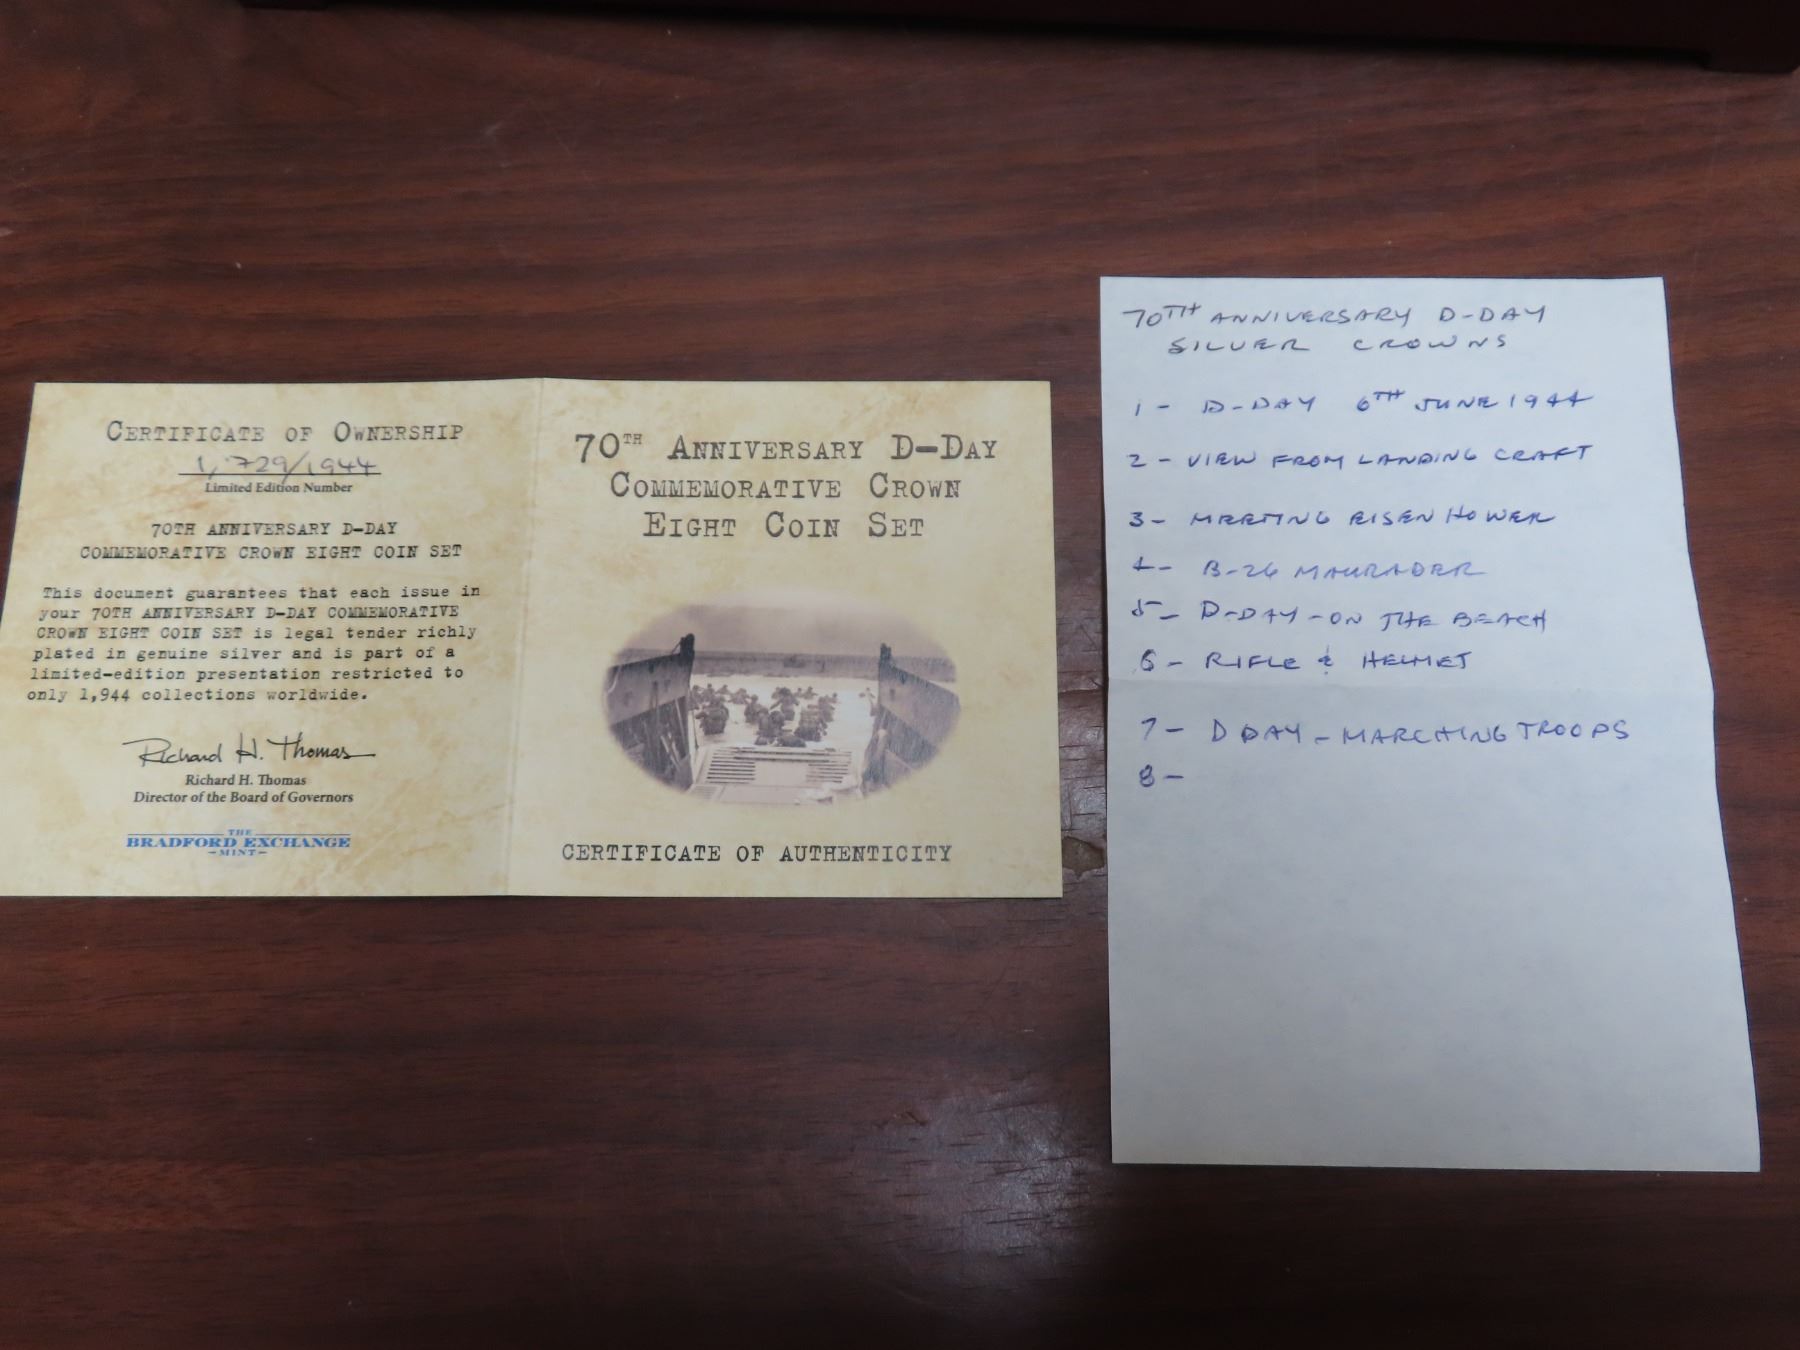 CERTIFICATE OF OWNERSHIP
1,729/1944
Limited Edition Number
70TH ANNIVERSARY D-DAY
COMMEMORATIVE CROWN EIGHT COIN SET
This document guarantees that each issue in
your 70TH ANNIVERSARY D-DAY COMMEMORATIVE
CROWN EIGHT COIN SET is legal tender richly
plated in genuine silver and is part of a
limited-edition presentation restricted to
only 1,944 collections worldwide.
Richard H. Thomas
Richard H. Thomas
Director of the Board of Governors
THE
BRADFORD EXCHANGE
-MINT-
70TH ANNIVERSARY D-DAY
COMMEMORATIVE CROWN
EIGHT COIN SET
CERTIFICATE OF AUTHENTICITY
70TH ANNIVERSARY D-DAY
SILVER CROWNS
1- D-DAY 6TH JUNE 1944
2- VIEW FROM LANDING CRAFT
3- MEETING EISENHOWER
4- B-26 MAURADER
5- D-DAY-ON THE BEACH
6- RIFLE & HELMET
7- D DAY - MARCHING TROOPS
8-